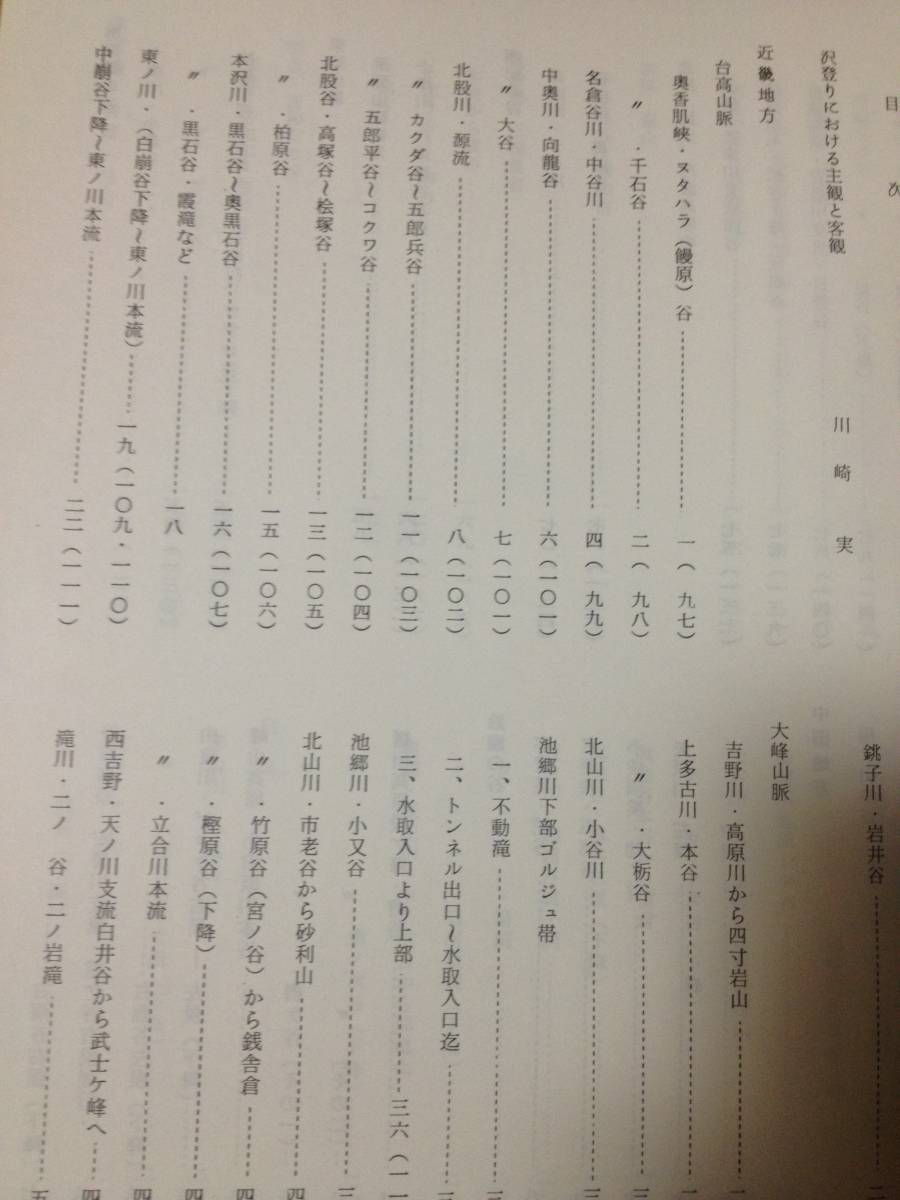 目次
沢登りにおける主観と客観 川崎 実
近畿地方
台高山脈
奥香肌峡・ヌタハラ（饅原）谷 一（九七）
〃・千石谷 二（九八）
名倉谷川・中谷川 四（九九）
中奥川・向龍谷 六（一〇一）
〃 大谷 七（一〇一）
北股川・源流 八（一〇二）
〃 カクダ谷〜五郎兵谷 一一（一〇三）
〃 五郎平谷〜コクワ谷 一二（一〇四）
北股谷・高塚谷〜桧塚谷 一三（一〇五）
〃・柏原谷 一五（一〇六）
本沢川・黒石谷〜奥黒石谷 一六（一〇七）
〃・黒石谷・霞滝など 一八
東ノ川・（白崩谷下降〜東ノ川本流） 一九（一〇九・一一〇）
中崩谷下降〜東ノ川本流 二二（一一一）
銚子川・岩井谷
大峰山脈
吉野川・高原川から四寸岩山
上多古川・本谷
〃・大栃谷
北山川・小谷川
池郷川下部ゴルジュ帯
一、不動滝
二、トンネル出口〜水取入口迄
三、水取入口より上部 三六（一一
池郷川・小又谷
北山川・市老谷から砂利山
〃・竹原谷（宮ノ谷）から銭舎倉
〃・樫原谷（下降）
〃・立合川本流
西吉野・天ノ川支流白井谷から武士ケ峰へ 四
滝川・二ノ谷・二ノ岩滝 五